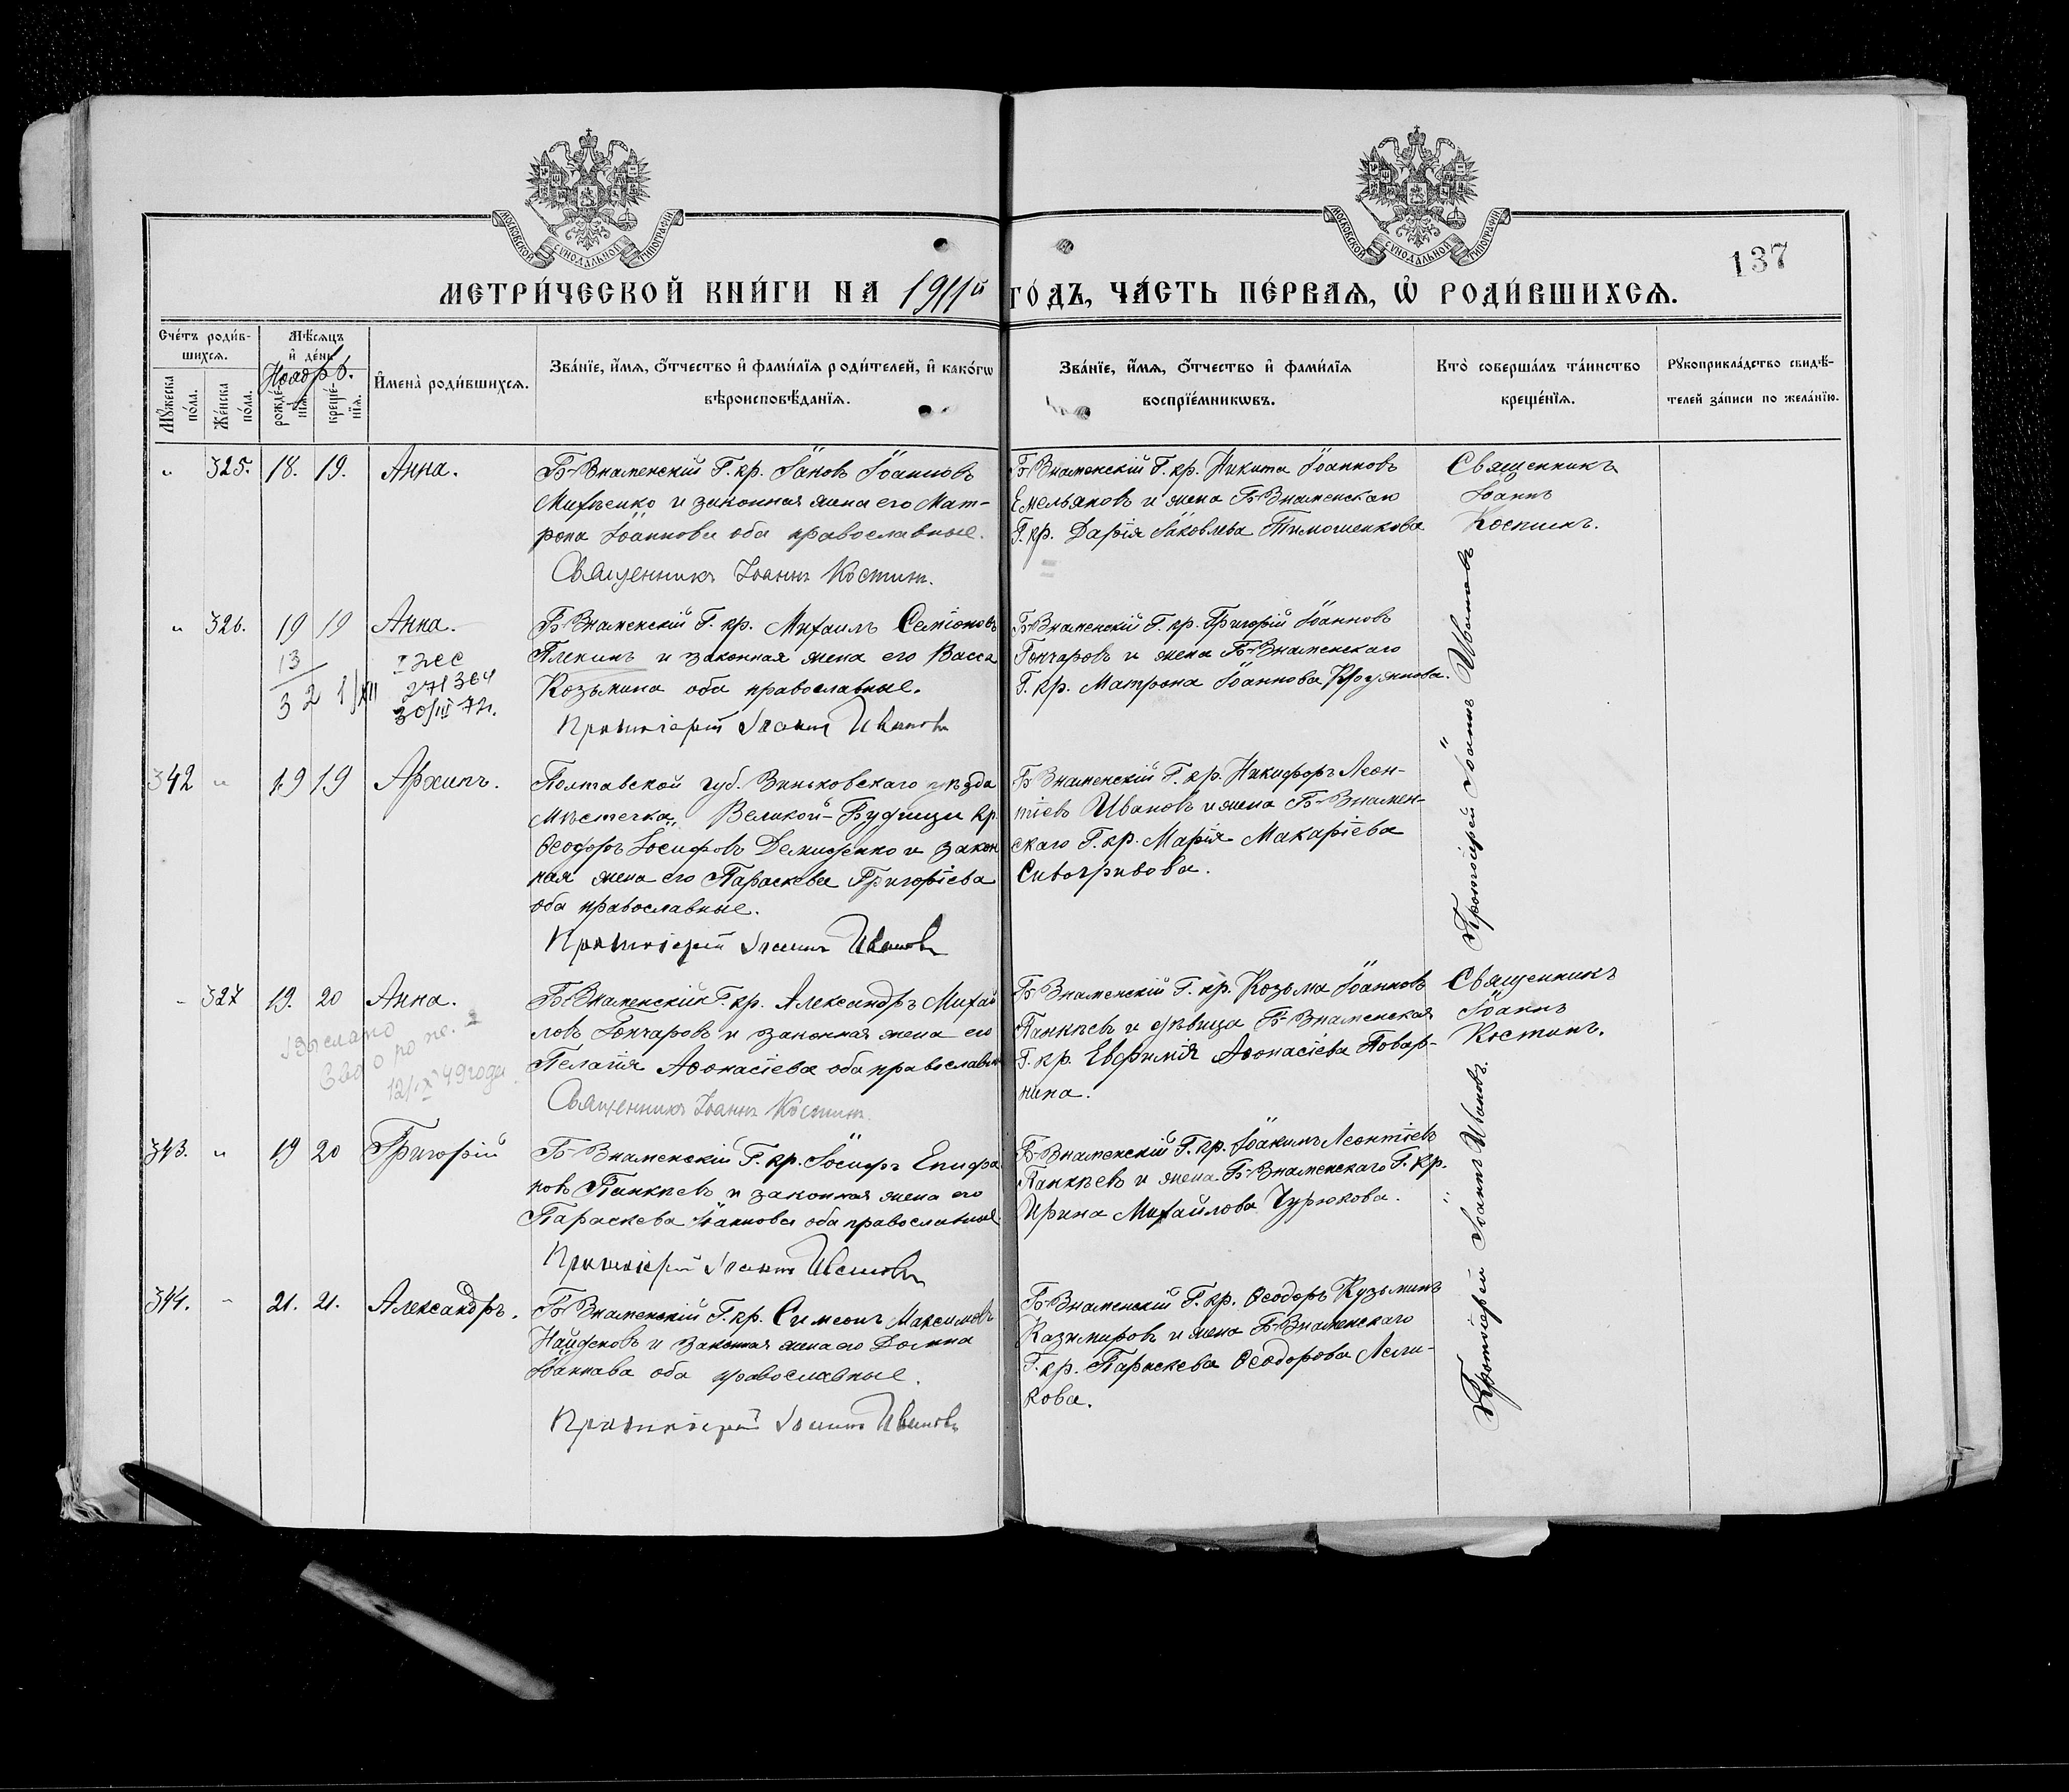 МОСКОВСКОЙ СѴНОДАЛЬНОЙ ТИПОГРАФІИ
МОСКОВСКОЙ СѴНОДАЛЬНОЙ ТИПОГРАФІИ
137
МЕТРИ́ЧЕСКОЙ КНИ́ГИ НА 1911й ГО́ДЪ, ЧА́СТЬ ПЕ́РВАЯ, Ѡ РОДИ́ВШИХСЯ.
Сче́тъ роди́в-
шихся.
Мꙋ́жеска по́ла.
Же́нска по́ла.
Мѣ́сяцъ
и҆ де́нь
Ноябрь.
рожде́нїя.
креще́нїя.
И҆мена̀ роди́вшихся.
Зва́нїе, и҆́мя, ѻ҆́тчество и҆ фами́лїя роди́телей, и҆ како́гѡ
вѣроисповѣ́данїя.
Зва́нїе, и҆́мя, ѻ҆́тчество и҆ фами́лїя
воспрїе́мникѡвъ.
Кто̀ соверша́лъ та́инство
креще́нїя.
Рꙋкоприкла́дство свидѣ́-
телей за́писи по жела́нїю.
" 325. 18. 19. Анна.
Б-Знаменскій Г. кр. Іоаннов
и законная жена его Мат-
рона Іоаннова оба православные.
Священникъ Іоаннъ Костинъ.
Б-Знаменскій Г. кр. Никита Іоаннов
Емельянов и жена Б-Знаменскаго
Г. кр. Дарія Іаковлева Тимошенкова
Священникъ
Іоаннъ
Костинъ.
" 326. 19 19 Анна.
13
3 2 1/XII
271364
30/III 72г.
Б-Знаменскій Г. кр. Михаилъ Симеонов
Плекинъ и законная жена его Васса
Козьмина оба православные.
Протоіерей Іоаннъ Ивановъ
Б-Знаменскій Г. кр. Григорій Іоаннов
Гончаров и жена Б-Знаменскаго
Г. кр. Матрона Іоаннова
Протоіерей Іоаннъ Ивановъ
342 " 19 19 Архипъ.
Полтавской губ. Зиньковскаго уѣзда
Мѣстечка Великой-Будищи кр.
Ѳеодоръ Іосифов Демиденко и закон
ная жена его Параскева Григоріева
оба православные.
Протоіерей Іоаннъ Ивановъ
Б-Знаменскій Г. кр. Никифоръ Леон-
тіев Иванов и жена Б-Знамен-
скаго Г. кр. Марія Макаріева
Сивогривова.
" 327 19. 20 Анна.
Выслано
12/IX 49 года
Б-Знаменскій Г. кр. Александръ Михай
лов Гончаров и законная жена его
Пелагія Аѳонасіева оба православн
Священникъ Іоаннъ Костинъ.
Б-Знаменскій Г. кр. Козьма Іоаннов
Панкѣев и дѣвица Б-Знаменская
Г. кр. Евфимія Аѳонасіева Повар-
нина.
Священникъ
Іоаннъ
Костинъ.
343. " 19 20 Григорій
Б-Знаменскій Г. кр. Іосифъ Епифа
нов Панкѣев и законная жена его
Параскева Іоаннова оба православные
Протоіерей Іоаннъ Ивановъ
Б-Знаменскій Г. кр. Іоакимъ Леонтіев
Панкѣев и жена Б-Знаменскаго Г. кр.
Ирина Михайлова Чурюкова.
Протоіерей Іоаннъ Ивановъ.
344. " 21. 21. Александръ.
Б-Знаменскій Г. кр. Симеонъ Максимов
Найденов и законная жена его Домна
Іоаннава оба православные.
Протоіерей Іоаннъ Ивановъ
Б-Знаменскій Г. кр. Ѳеодоръ Кузьминъ
Казимиров и жена Б-Знаменскаго
Г. кр. Параскева Ѳеодорова Лели-
кова.